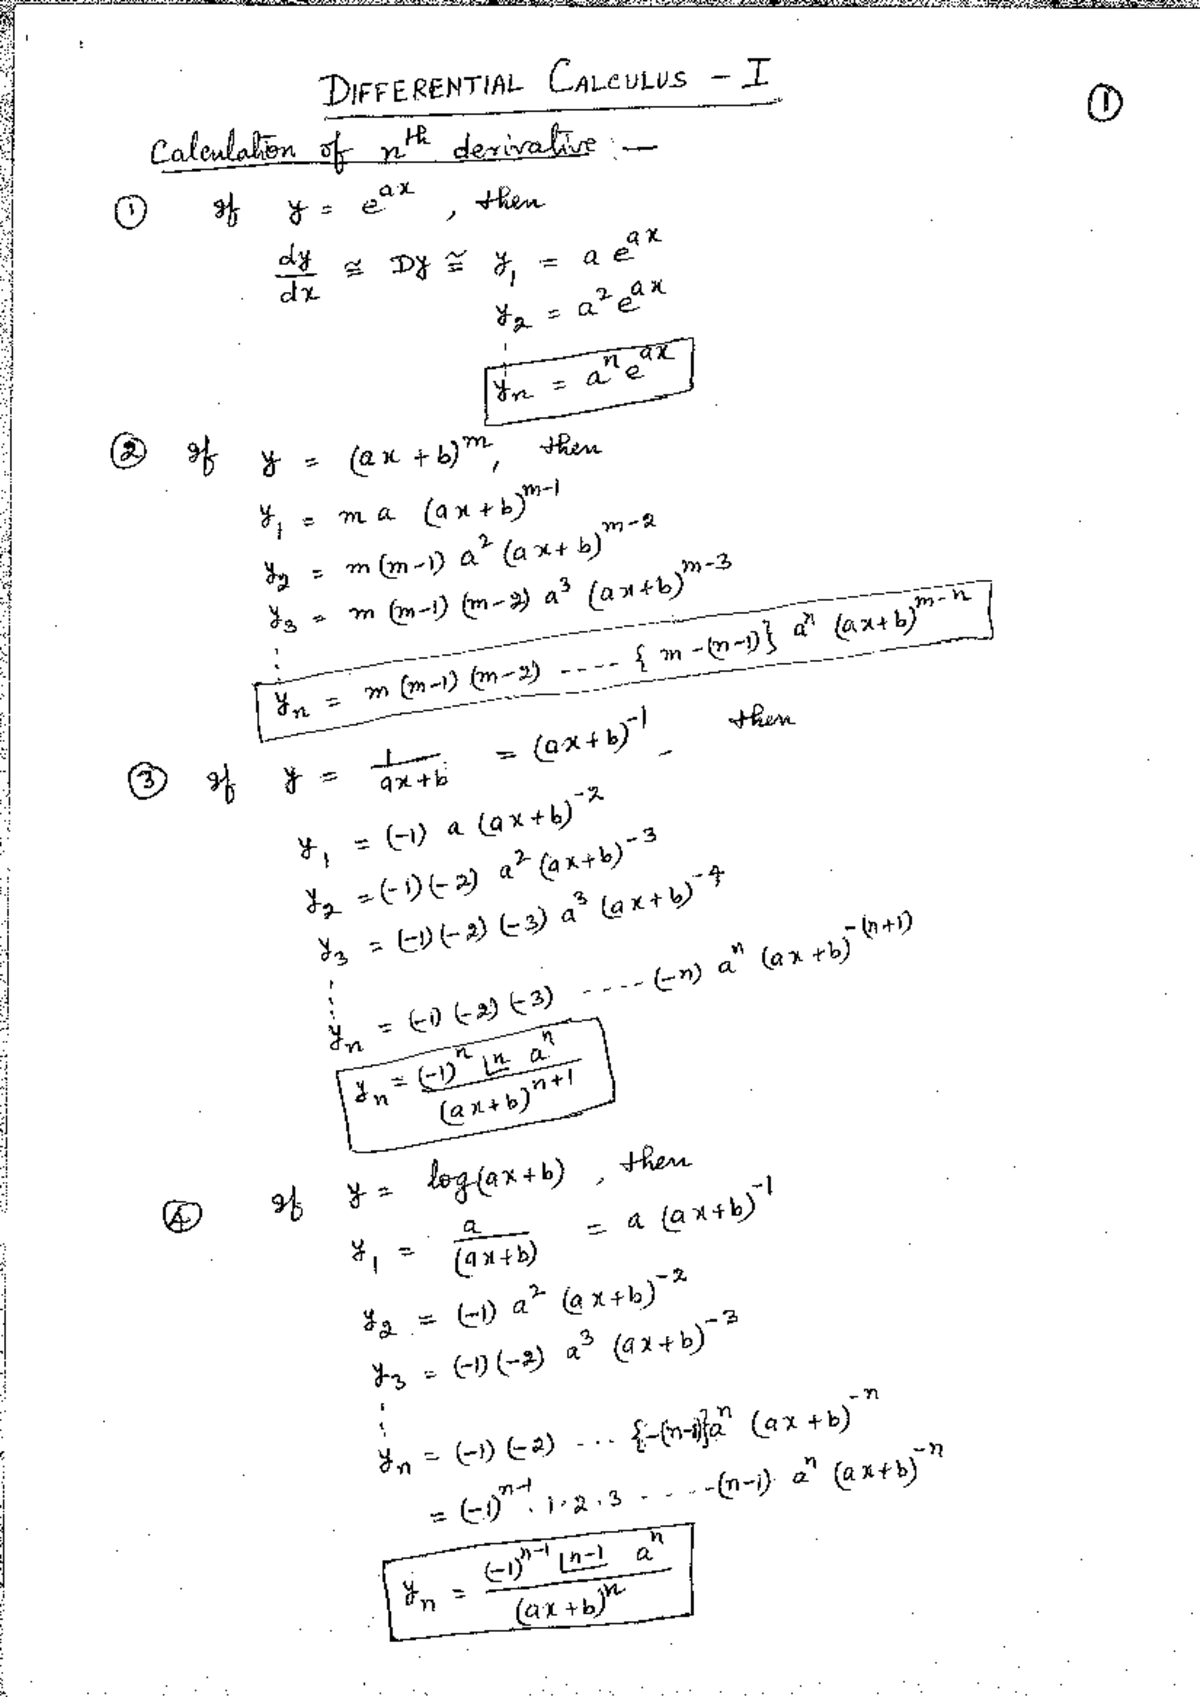 DIFFERENTIAL CALCULUS - I
①
Calculation of nᵗʰ derivative :—
① If y = e^{ax} , then
dy/dx ≅ Dy ≅ y₁ = a e^{ax}
y₂ = a² e^{ax}
yₙ = aⁿ e^{ax}
② If y = (ax + b)^m , then
y₁ = m a (ax + b)^{m-1}
y₂ = m (m-1) a² (ax + b)^{m-2}
y₃ = m (m-1) (m-2) a³ (ax+b)^{m-3}
yₙ = m (m-1) (m-2) ----- { m - (n-1)} aⁿ (ax+b)^{m-n}
③ If y = 1/(ax+b) = (ax+b)^{-1} , then
y₁ = (-1) a (ax+b)^{-2}
y₂ = (-1) (-2) a² (ax+b)^{-3}
y₃ = (-1) (-2) (-3) a³ (ax+b)^{-4}
yₙ = (-1) (-2) (-3) ----- (-n) aⁿ (ax+b)^{-(n+1)}
yₙ = (-1)ⁿ |n aⁿ / (ax+b)^{n+1}
④ If y = log(ax+b) , then
y₁ = a/(ax+b) = a (ax+b)^{-1}
y₂ = (-1) a² (ax+b)^{-2}
y₃ = (-1) (-2) a³ (ax+b)^{-3}
yₙ = (-1) (-2) ... {-(n-1)} aⁿ (ax+b)^{-n}
= (-1)^{n-1} . 1.2.3 ----- (n-1) aⁿ (ax+b)^{-n}
yₙ = (-1)^{n-1} |n-1 aⁿ / (ax+b)ⁿ